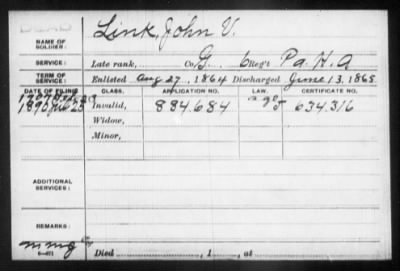 NAME OF SOLDIER: Link, John V.
SERVICE: Late rank, Co. G. 6 Reg't Pa. H. A
TERM OF SERVICE: Enlisted Aug 27, 1864 Discharged June 13, 1865
DATE OF FILING CLASS. APPLICATION NO. LAW. CERTIFICATE NO.
1890 Jul 23 Invalid, 884.684 634.316
Widow,
Minor,
ADDITIONAL SERVICES:
REMARKS:
6-471 Died , 1 , at